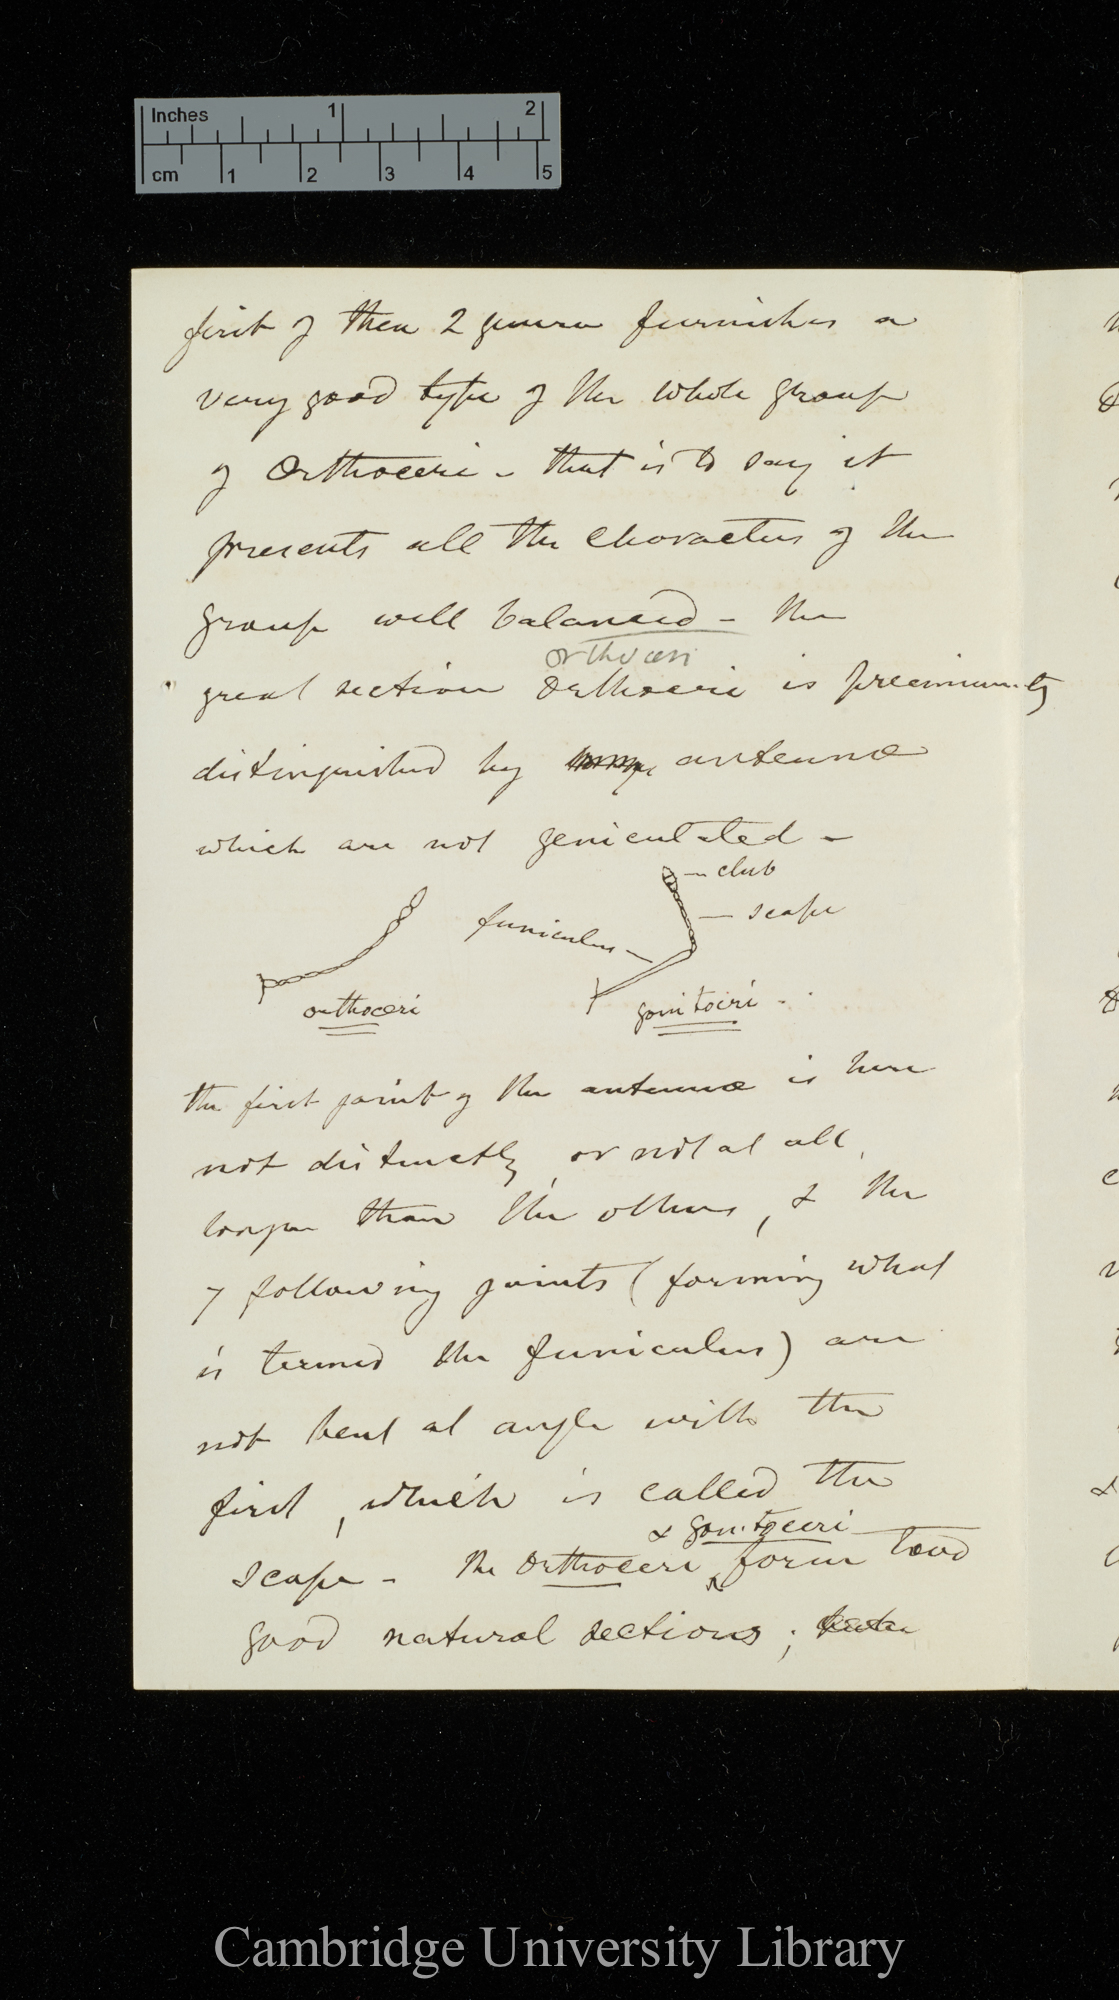 Inches 1 2
cm 1 2 3 4 5
first of these 2 genera furnishes a
very good type of the whole group
of Orthoceri - that is to say it
presents all the characters of the
group well balanced - the
orthoceri
great section Orthoceri is preeminently
distinguished by antennæ
which are not geniculated -
club
scape
funiculus
orthoceri
gonitoceri -
the first joint of the antennæ is here
not distinctly, or not at all,
longer than the others, & the
7 following joints (forming what
is termed the funiculus) are
not bent at angle with the
first, which is called the
& gonitoceri
scape - The Orthoceri form two
good natural sections;
Cambridge University Library